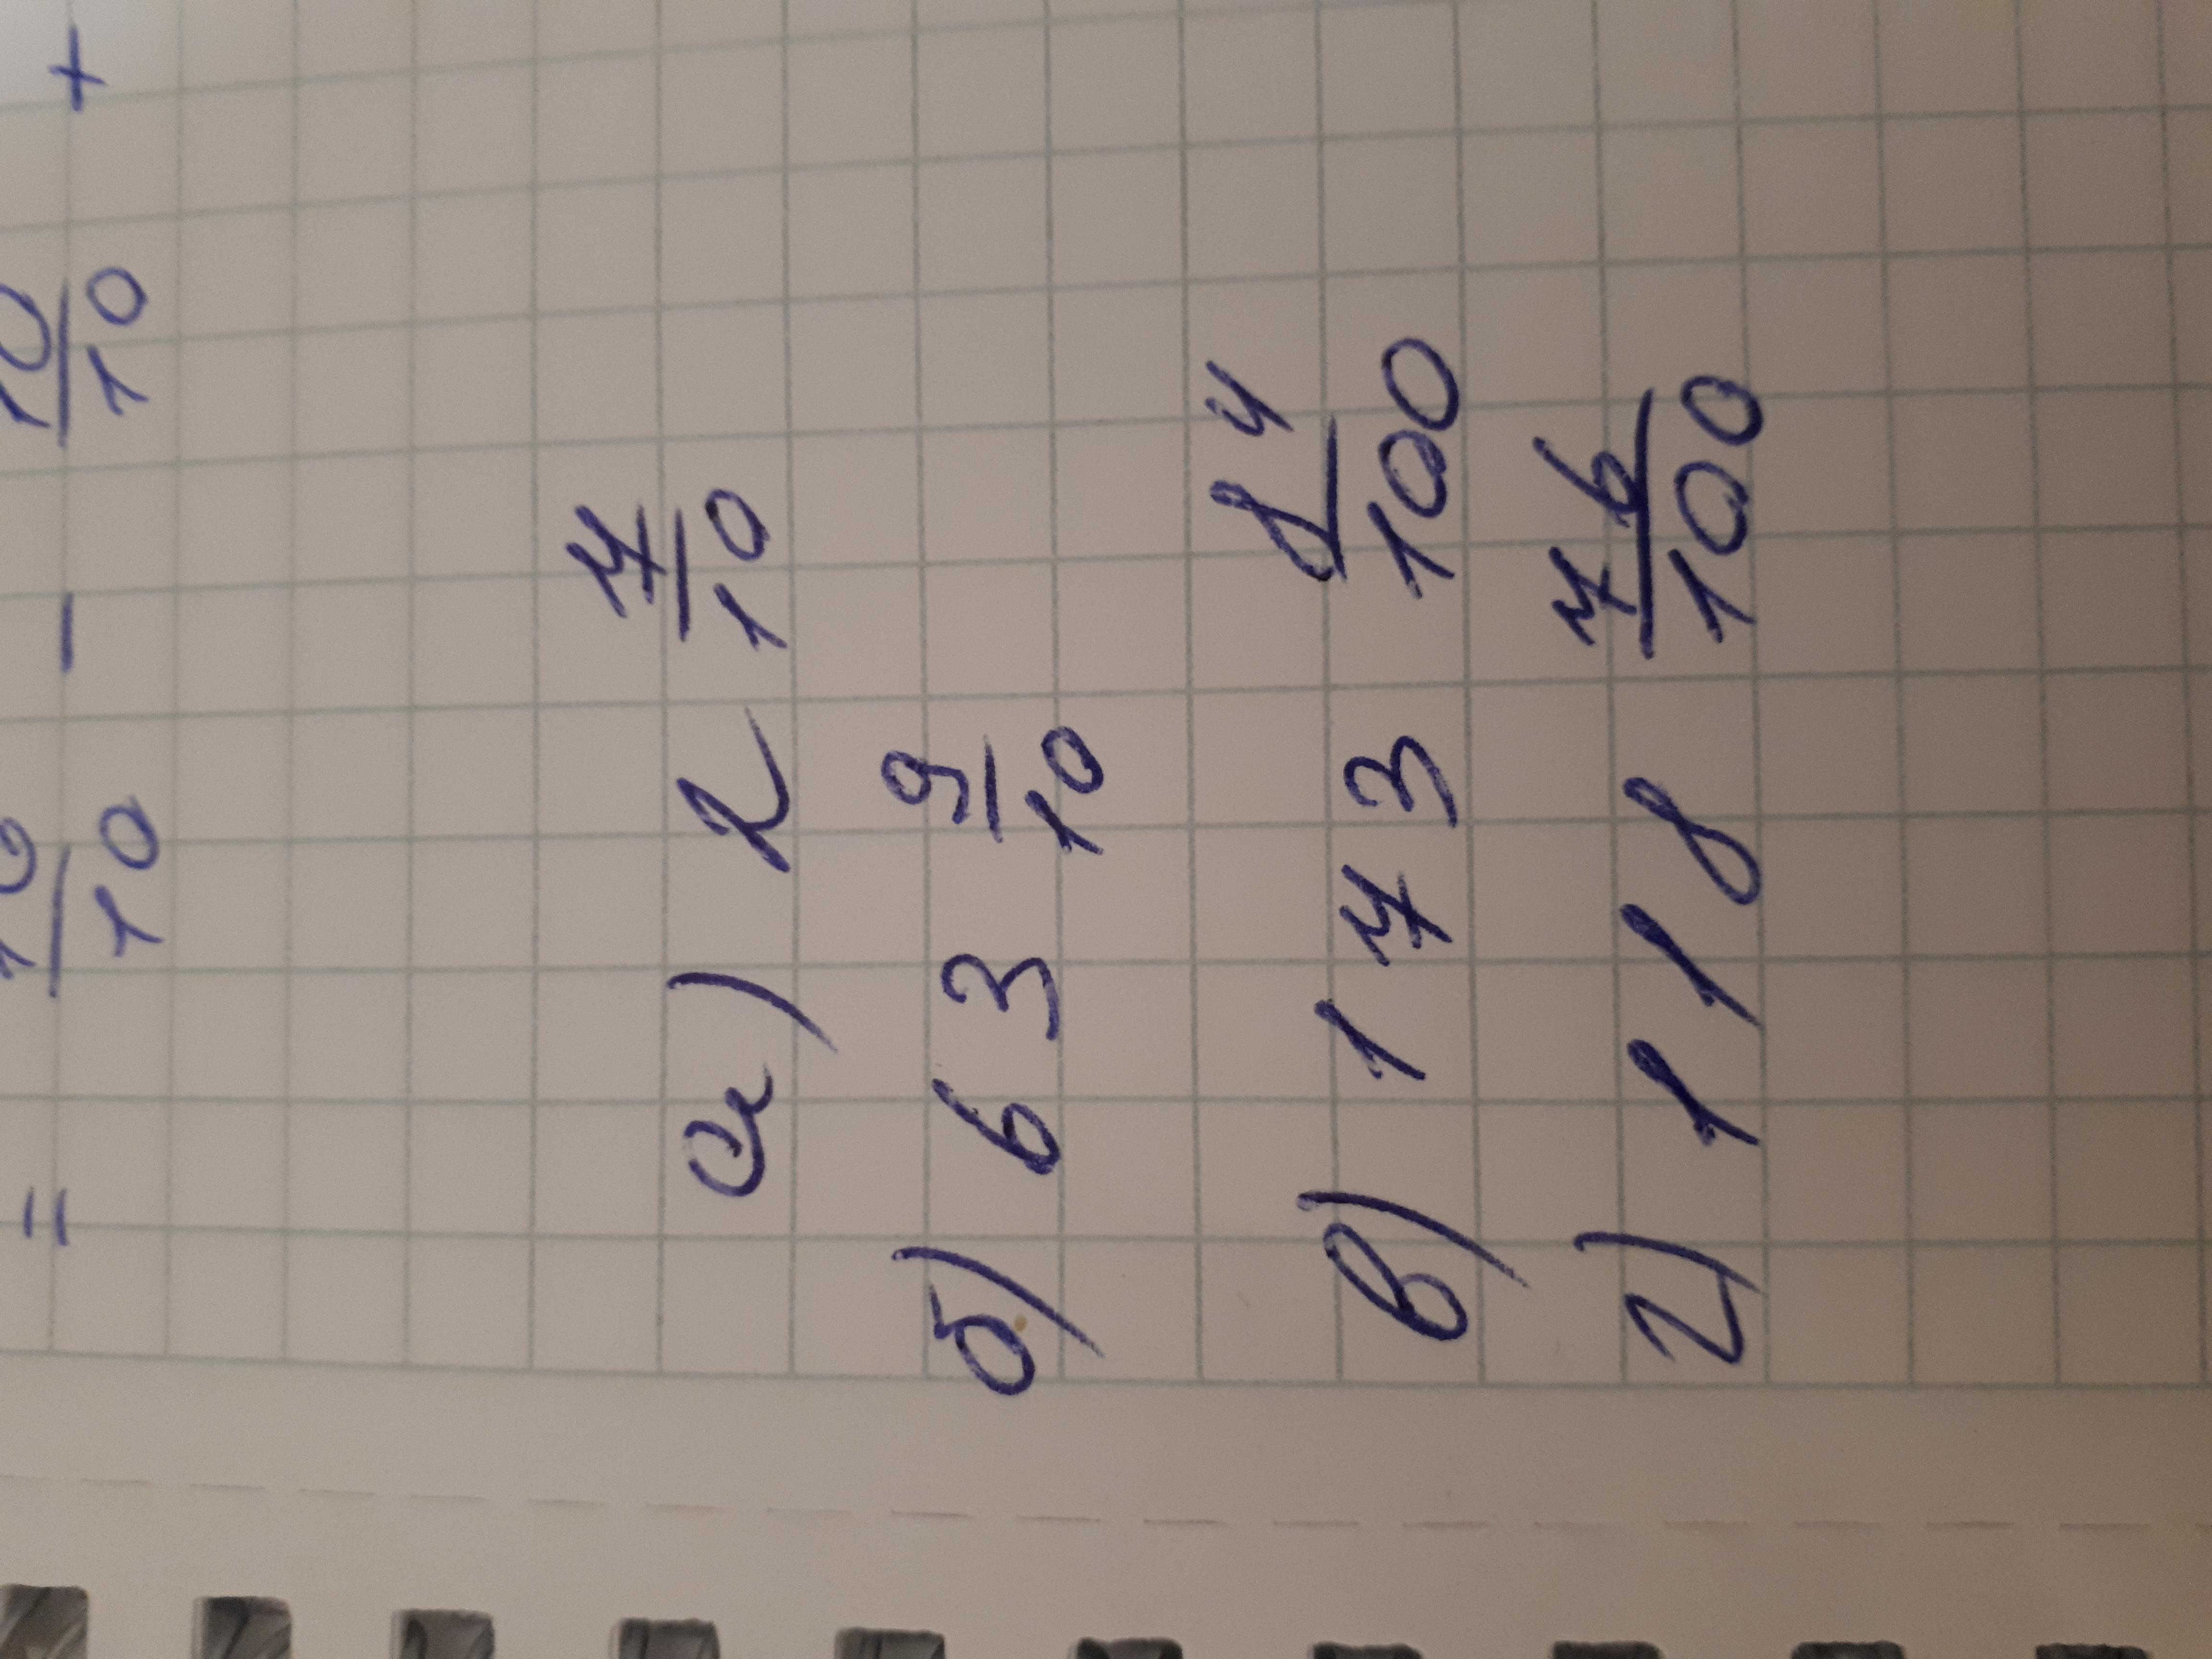 = 10/10 - 10/10 +
а) 2 7/10
б) 63 9/10
в) 173 84/100
г) 118 76/100